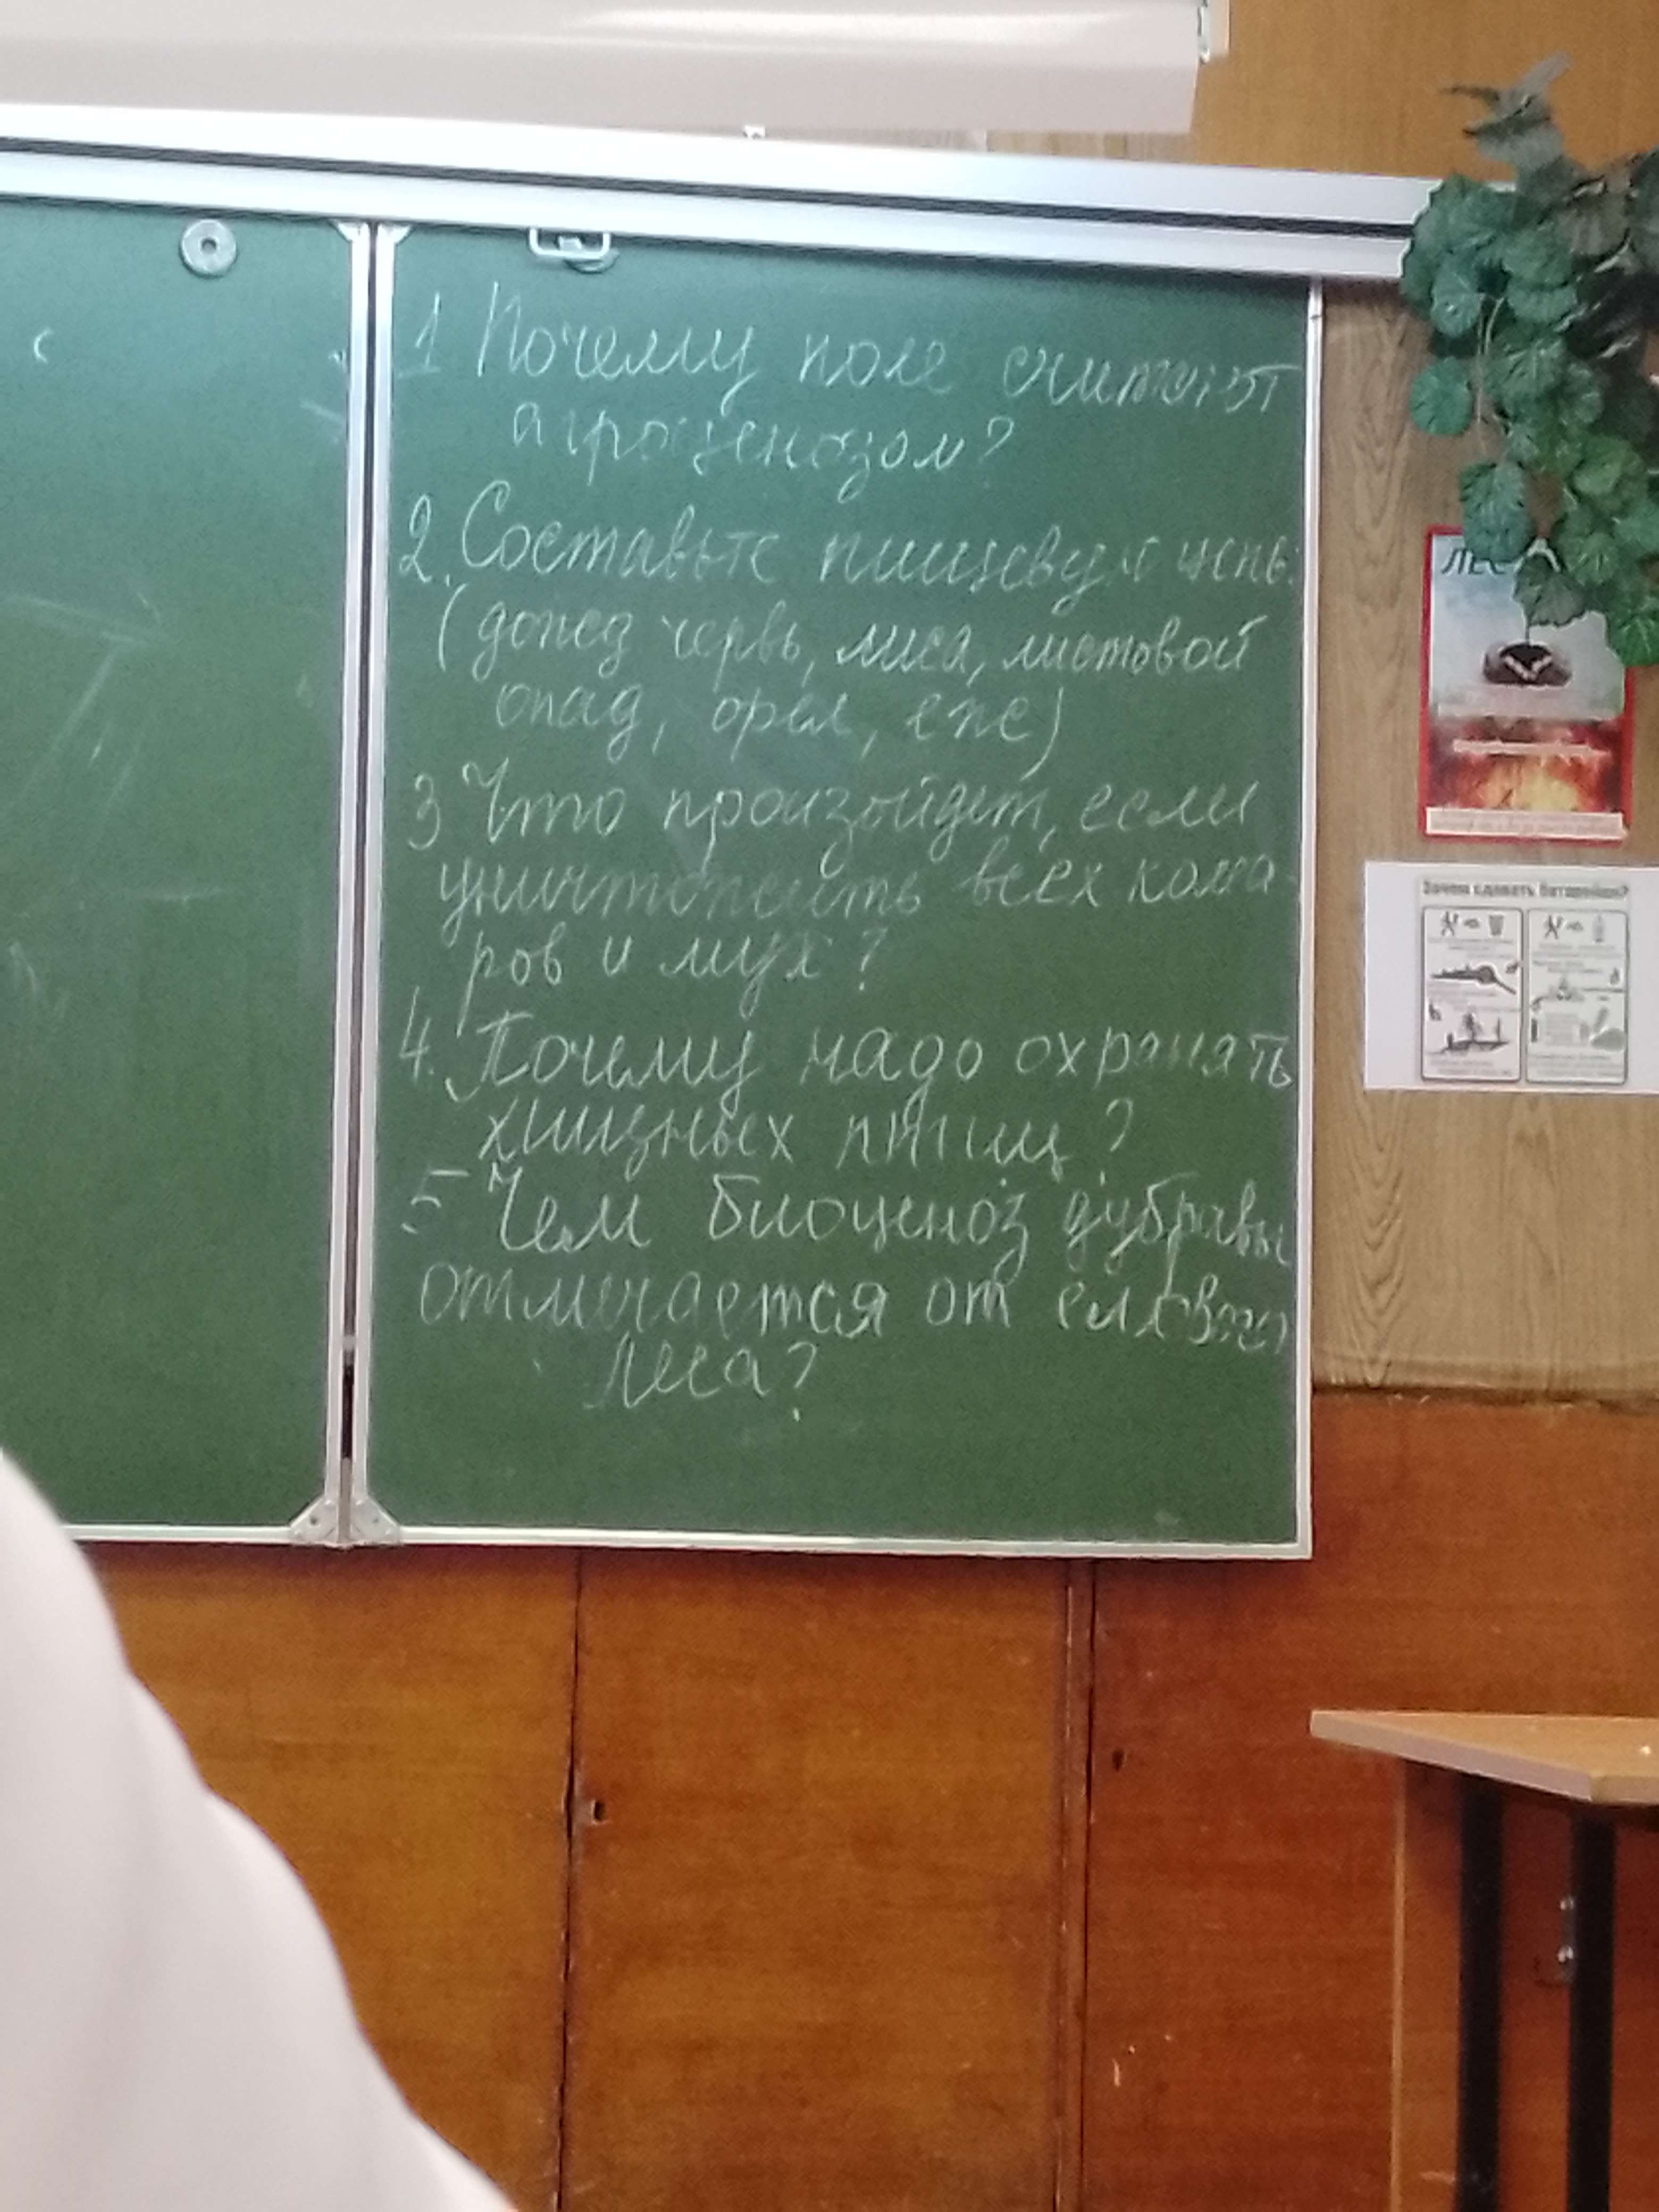 1 Почему поле считают
агроценозом?
2. Составьте пищевую цепь:
(дожд червь, лиса, листовой
опад, орел, еж)
3 Что произойдет, если
уничтожить всех кома-
ров и мух?
4. Почему надо охранять
хищных птиц?
5 Чем биоценоз дубравы
отличается от елового
леса?
ЛЕС
Зачем сдавать батарейки?